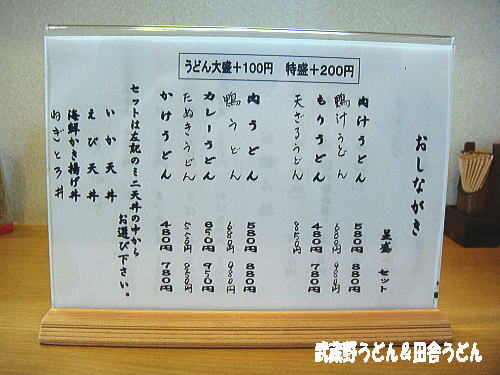 うどん大盛+100円 特盛+200円
おしながき
並盛 セット
肉汁うどん 580円 880円
鴨汁うどん 680円 980円
もりうどん 480円 780円
天ざるうどん 850円
肉うどん 580円 880円
鴨うどん 680円 980円
カレーうどん 650円 950円
たぬきうどん
かけうどん 480円 780円
セットは左記のミニ天丼の中から
お選び下さい。
いか天丼
えび天丼
海鮮かき揚げ丼
ねぎとろ丼
武蔵野うどん&田舎うどん